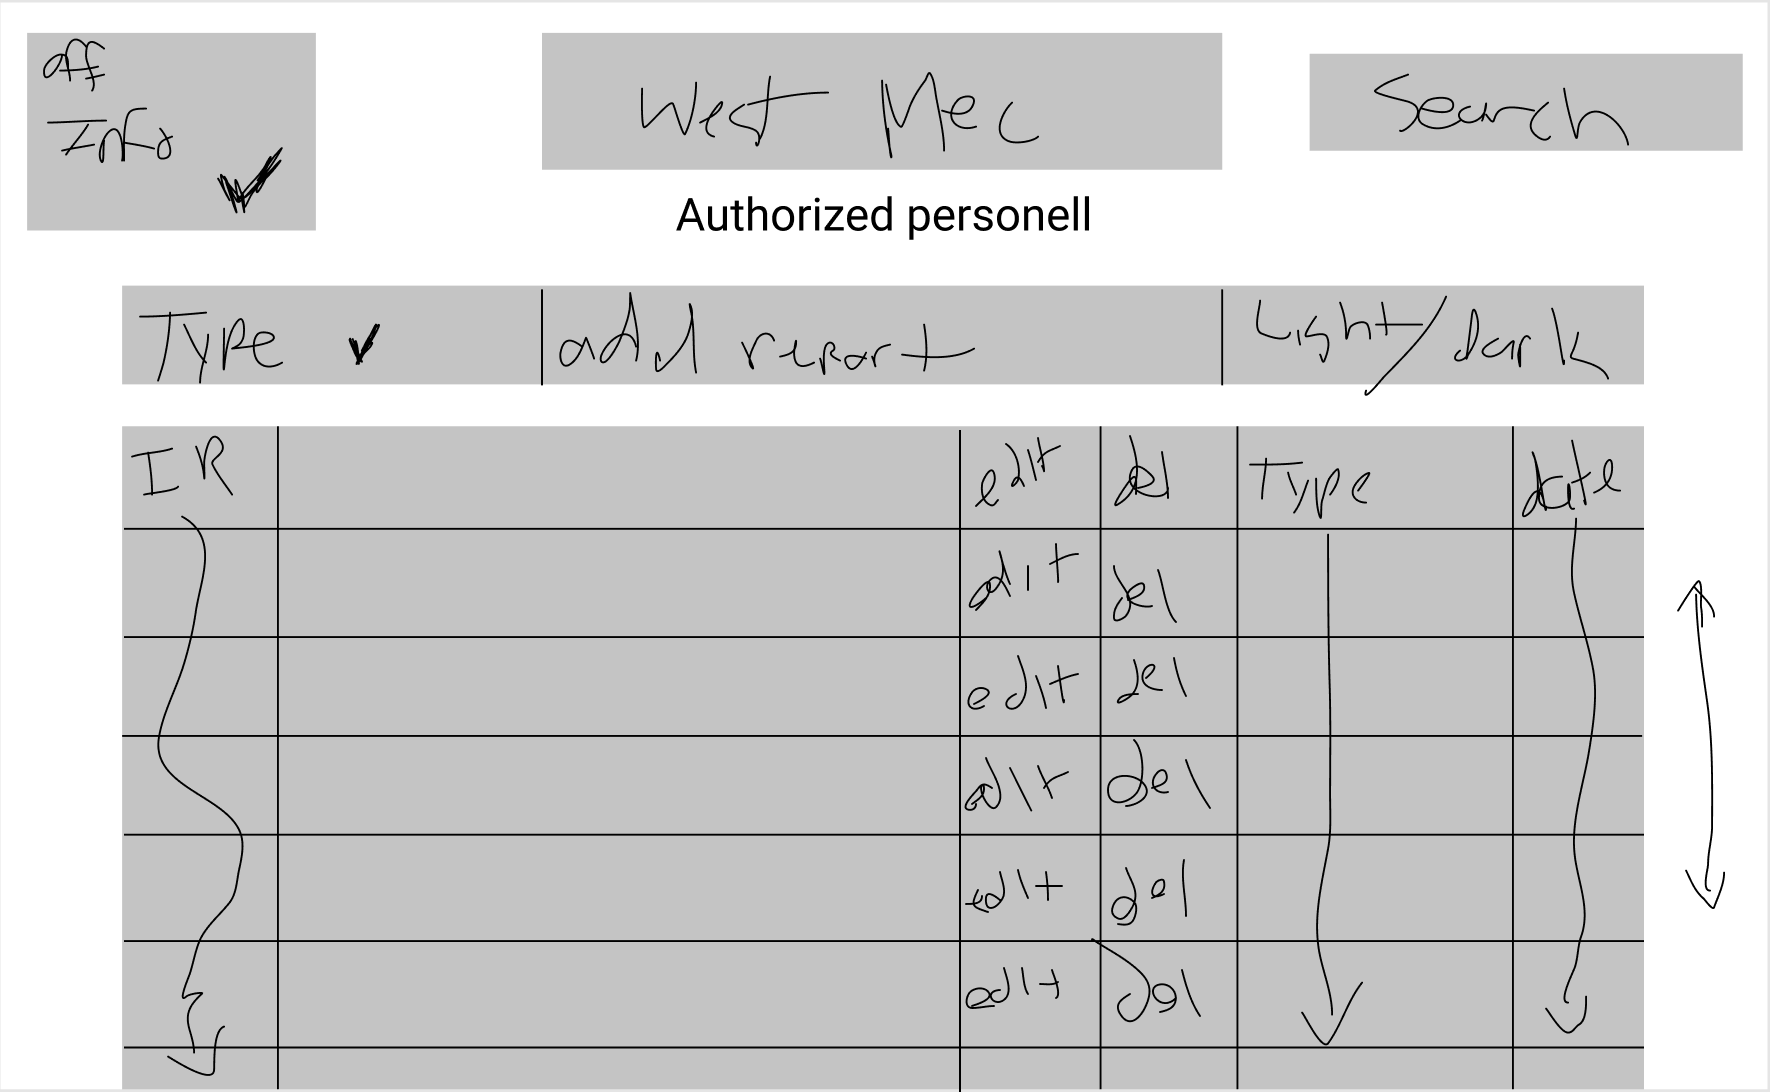 off
Info
West Mec
Search
Authorized personell
Type
add report
Light/dark
IR
edit
del
Type
date
edit
del
edit
del
edit
del
edit
del
edit
del